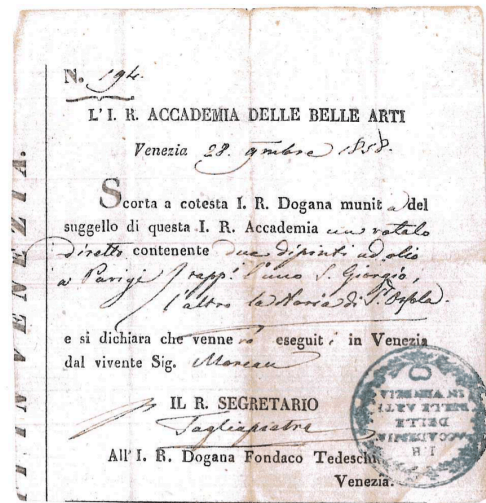 N. 194.
L'I. R. ACCADEMIA DELLE BELLE ARTI
Venezia 28. 9mbre 1858.
Scorta a cotesta I. R. Dogana munit a del
suggello di questa I. R. Accademia un rotolo
diretto contenente due dipinti ad olio
a Parigi rapp.i l'uno S. Giorgio,
l'altro la Storia di S.a Orsola.
e si dichiara che venne ro eseguit i in Venezia
dal vivente Sig. Moreau
IL R. SEGRETARIO
Tagliapietra
All' I. R. Dogana Fondaco Tedeschi
Venezia.
IN VENEZIA.
I. R.
ACCADEMIA
DELLE
BELLE ARTI
IN VENEZIA